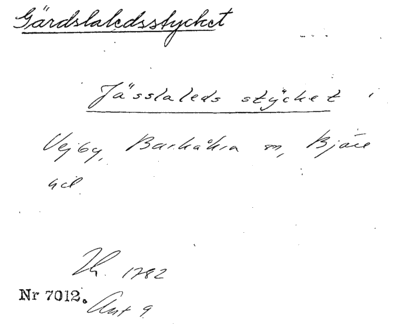 Gärdslaledsstycket
Jässlaleds stycket i
Vejby, Barkåkra sn, Bjäre
hd
Lh. 1782
Nr 7012.
Akt 9